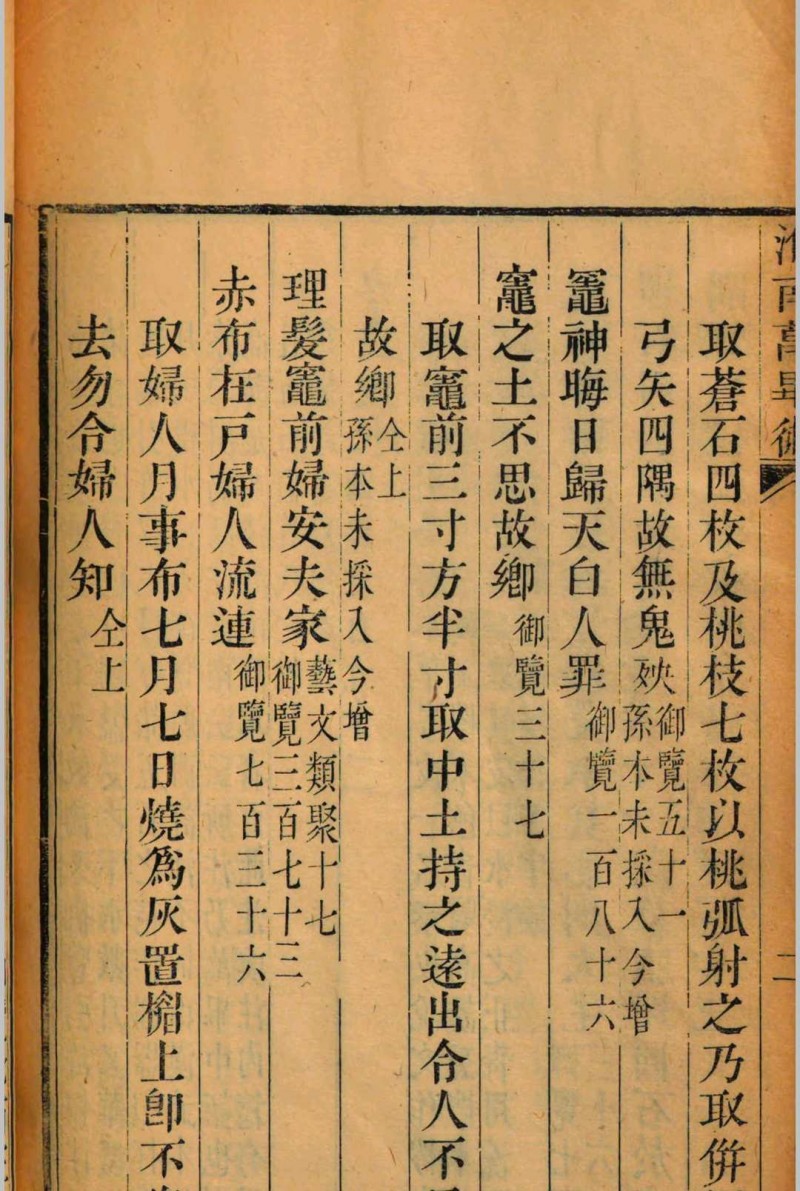 淮南萬畢術
二
取蒼石四枚及桃枝七枚以桃弧射之乃取併
弓矢四隅故無鬼殃御覽五十一
孫本未採入今增
竈神晦日歸天白人罪御覽一百八十六
竈之土不思故鄉御覽三十七
取竈前三寸方半寸取中土持之遠出令人不
故鄉仝上
孫本未採入今增
理髮竈前婦安夫家藝文類聚十七
御覽三百七十三
赤布在戶婦人流連御覽七百三十六
取婦人月事布七月七日燒為灰置楣上卽不
去勿令婦人知仝上